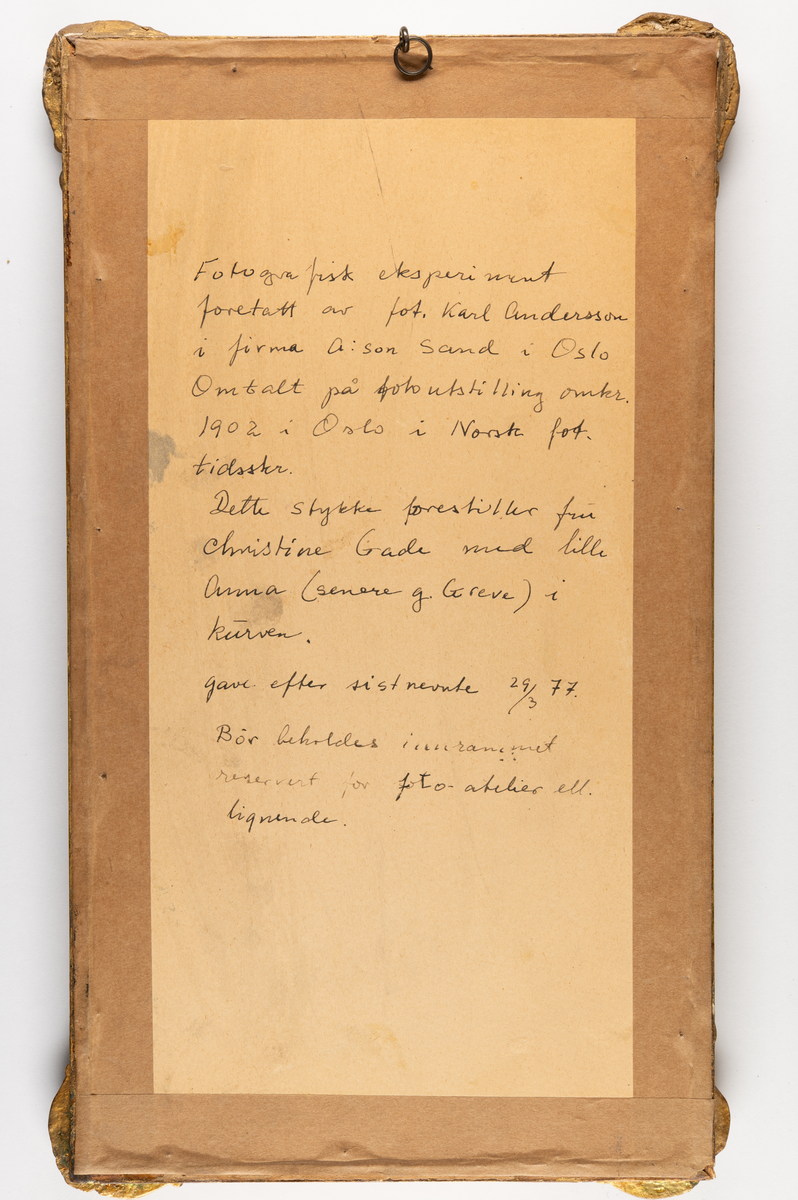 Fotografisk eksperiment
foretatt av fot. Karl Andersson
i firma A:son Sand i Oslo
Omtalt på fotoutstilling omkr.
1902 i Oslo i Norsk fot.
tidsskr.
Dette stykke forestiller frü
Christine Gade med lille
Anna (senere g. Greve) i
kürven.
gave efter sistnevnte 29/3 77.
Bör beholdes innrammet
reservert for foto-atelier ell.
lignende.